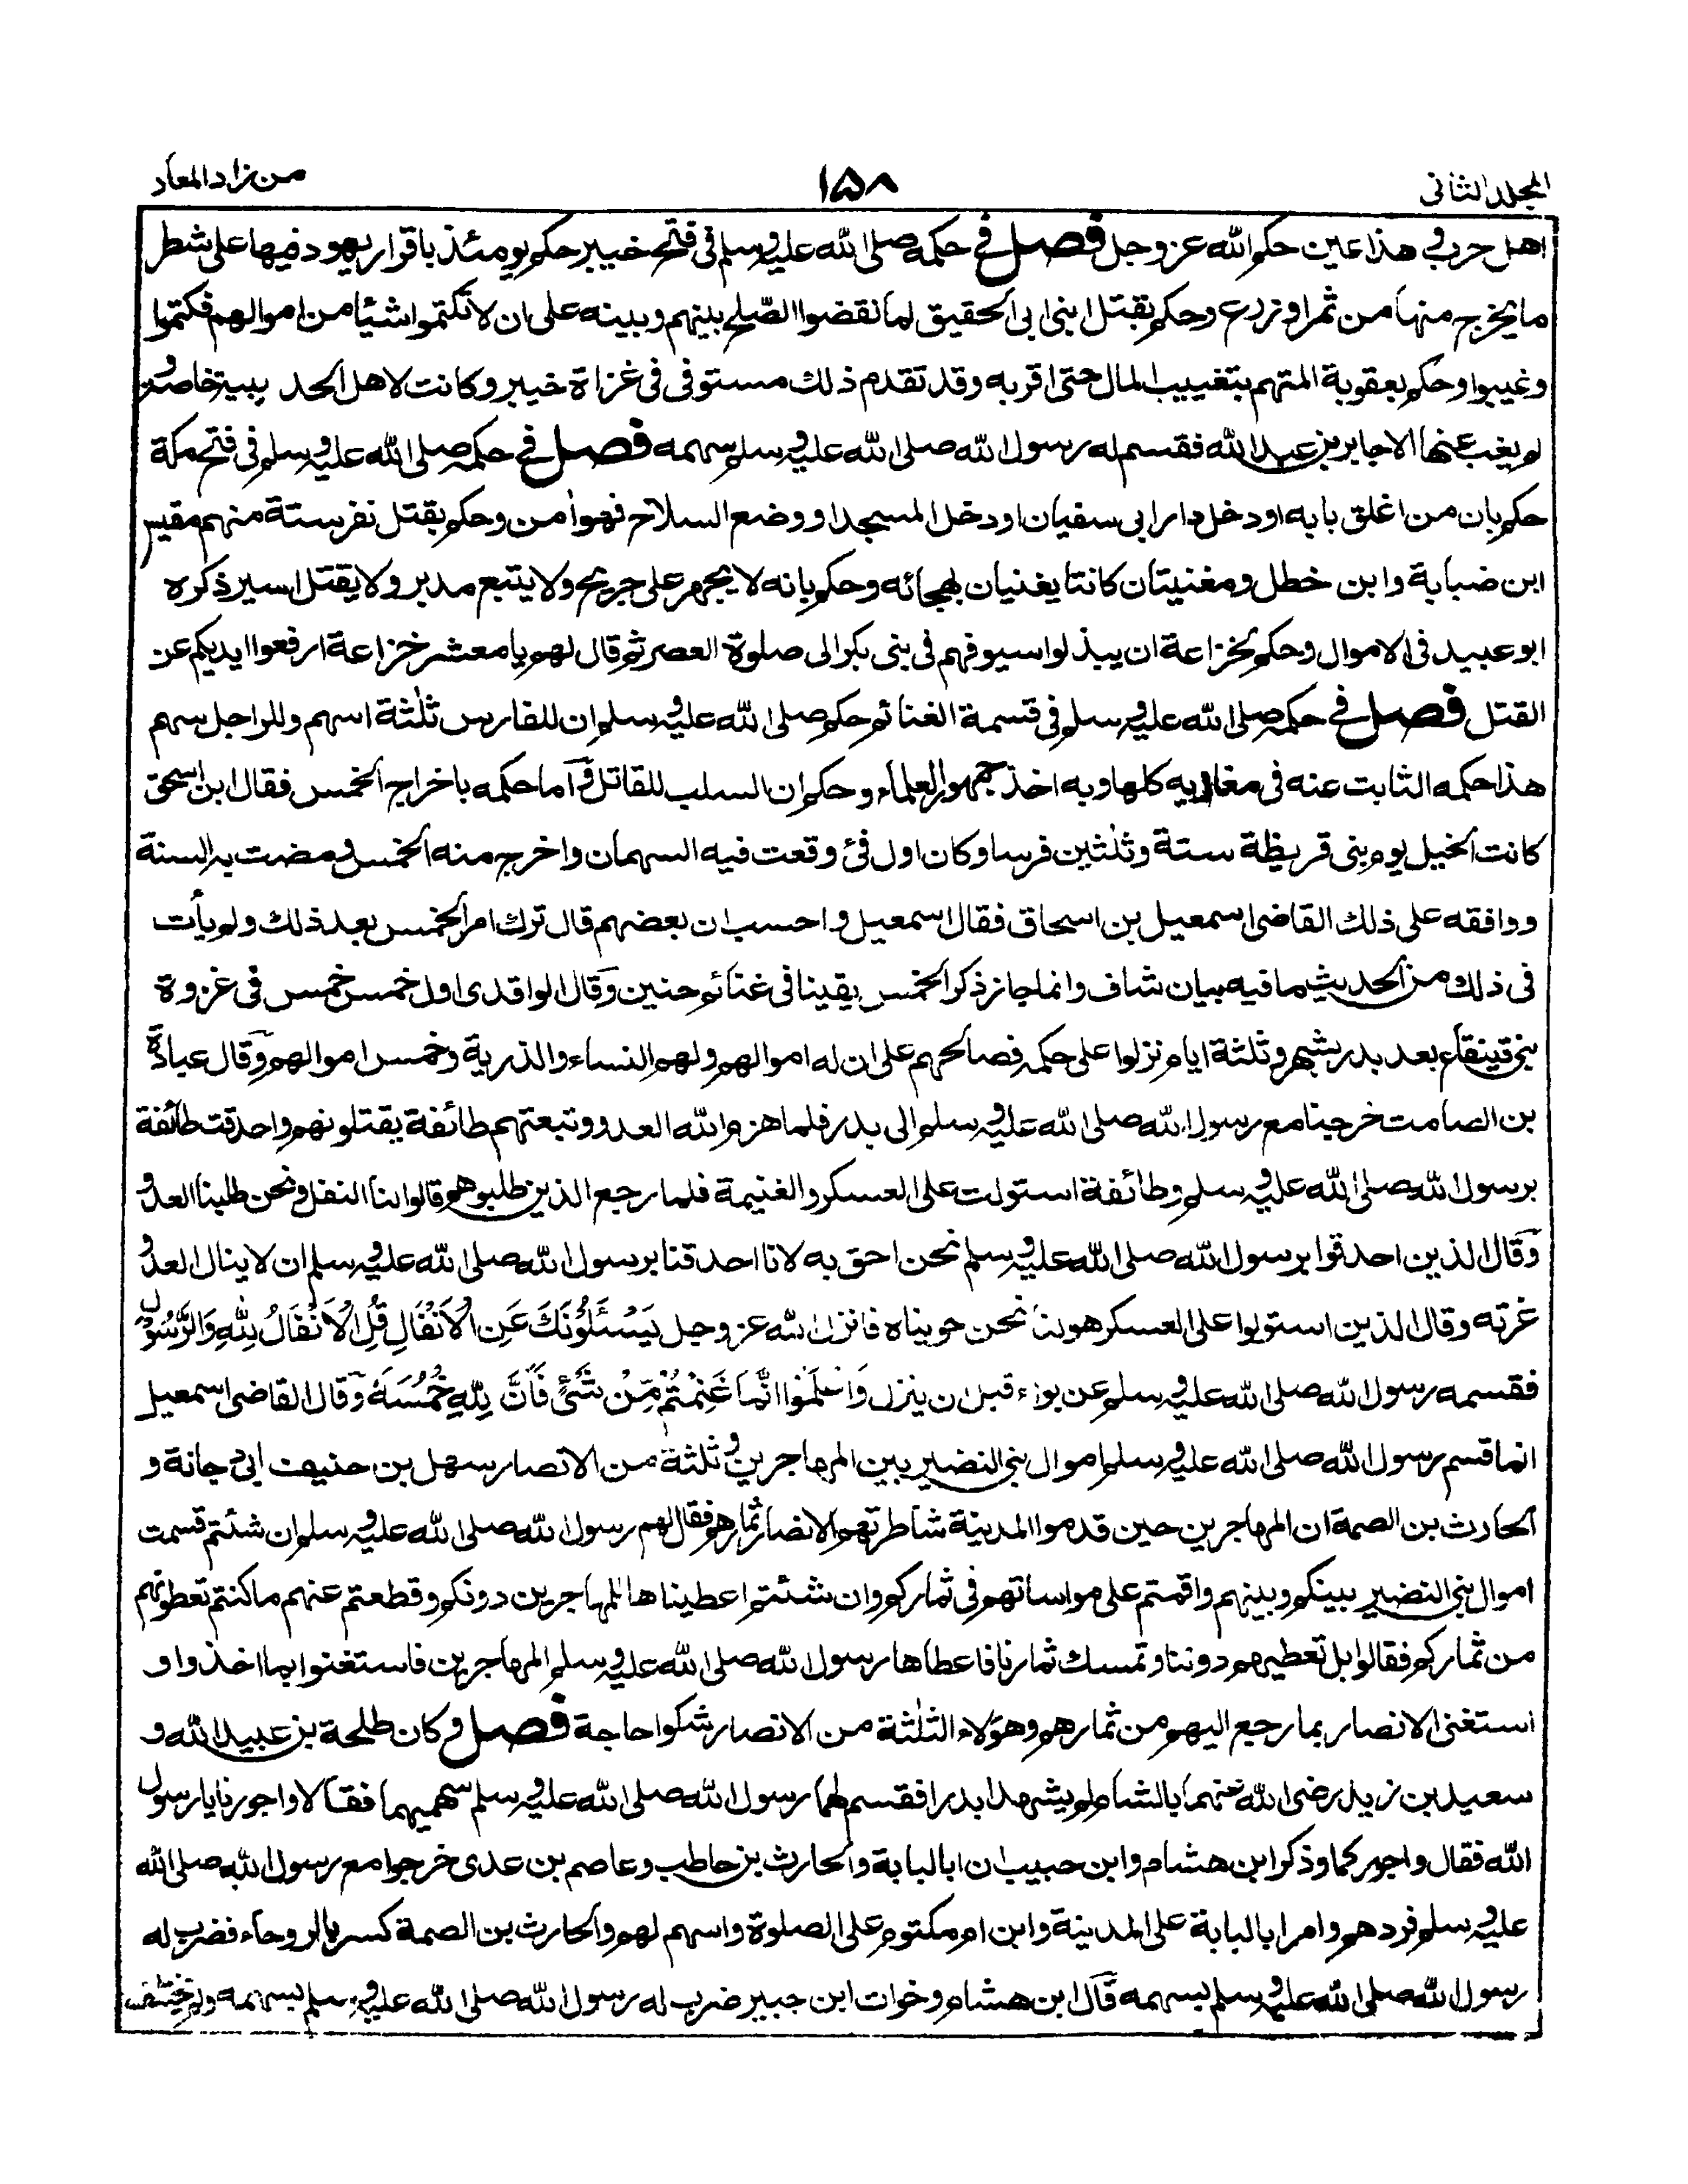 المجلد الثانى
١٥٨
من زاد المعاد
اهل حرب و هذا عين حكم الله عز وجل فصل فى حكمه صلى الله عليه وسلم فى فتح خيبر حكم يومئذ باقرار يهود فيها على شطر
ما يخرج منها من ثمر او زرع وحكم بقتل ابنى ابى الحقيق لما نقضوا الصلح بينهم وبينه على ان لا تكتموا شيئا من اموالهم فكتموا
وغيبوا وحكم بعقوبة المتهم بتغييب المال حتى اقر به وقد تقدم ذلك مستوفى فى غزاة خيبر وكانت لاهل الحديبية خاصة و
لم يغب عنها الا جابر بن عبد الله فقسم له رسول الله صلى الله عليه وسلم سهمه فصل فى حكمه صلى الله عليه وسلم فى فتح مكة
حكم بان من اغلق بابه او دخل دار ابى سفيان او دخل المسجد او وضع السلاح فهو اٰمن وحكم بقتل نفر ستة منهم مقيس
ابن ضبابة وابن خطل ومغنيتان كانتا يغنيان بهجائه وحكم بانه لا يجهز على جريح ولا يتبع مدبر ولا يقتل اسير ذكره
ابو عبيد فى الاموال وحكم لخزاعة ان يبذلوا سيوفهم فى بنى بكر الى صلوة العصر ثم قال لهم يا معشر خزاعة ارفعوا ايديكم عن
القتل فصل فى حكمه صلى الله عليه وسلم فى قسمة الغنائم حكم صلى الله عليه وسلم ان للفارس ثلٰثة اسهم وللراجل سهم
هذا حكمه الثابت عنه فى مغازيه كلها وبه اخذ جمهور العلماء وحكم ان السلب للقاتل وَاما حكمه باخراج الخمس فقال ابن اسحٰق
كانت الخيل يوم بنى قريظة ستة وثلٰثين فرسا وكان اول فئ وقعت فيه السهمان واخرج منه الخمس ومضت به السنة
ووافقه على ذلك القاضى اسمعيل بن اسحاق فقال اسمعيل واحسب ان بعضهم قال ترك امر الخمس بعد ذلك ولم يأت
فى ذلك من الحديث ما فيه بيان شاف وانما جاز ذكر الخمس يقينا فى غنائم حنين وَقال الواقدى اول خمس خمس فى غزوة
بنى قينقاع بعد بدر بشهر وثلثة ايام نزلوا على حكمه فصالحهم على ان له اموالهم ولهم النساء والذرية وخمس اموالهم وَقال عبادة
بن الصامت خرجنا مع رسول الله صلى الله عليه وسلم الى بدر فلما هزم الله العدو وتبعتهم طائفة يقتلونهم واحدقت طائفة
برسول الله صلى الله عليه وسلم وطائفة استولت على العسكر والغنيمة فلما رجع الذين طلبوهم قالوا لنا النفل ونحن طلبنا العدو
وَقال الذين احدقوا برسول الله صلى الله عليه وسلم نحن احق به لانا احدقنا برسول الله صلى الله عليه وسلم ان لا ينال العدو
غرته وقال الذين استولوا على العسكر هو لنا نحن حويناه فانزل الله عز وجل يَسْئَلُوْنَكَ عَنِ الْاَنْفَالِ قُلِ الْاَنْفَالُ لِلّٰهِ وَالرَّسُوْلِ
فقسمه رسول الله صلى الله عليه وسلم عن بواء قبل ان ينزل وَاعْلَمُوْا اَنَّمَا غَنِمْتُمْ مِّنْ شَئٍ فَاَنَّ لِلّٰهِ خُمُسَهٗ وَقال القاضى اسمعيل
انما قسم رسول الله صلى الله عليه وسلم اموال بنى النضير بين المهاجرين و ثلثة من الانصار سهل بن حنيف ابى دجانة و
الحارث بن الصمة ان المهاجرين حين قدموا المدينة شاطرتهم الانصار ثمارهم فقال لهم رسول الله صلى الله عليه وسلم ان شئتم قسمت
اموال بنى النضير بينكم وبينهم واقمتم على مواساتهم فى ثماركم وان شئتم اعطيناها للمهاجرين دونكم وقطعتم عنهم ما كنتم تعطونهم
من ثماركم فقالوا بل تعطيهم دوننا وتمسك ثمارنا فاعطاها رسول الله صلى الله عليه وسلم المهاجرين فاستغنوا بما اخذوا و
استغنى الانصار بما رجع اليهم من ثمارهم وهؤلاء الثلٰثة من الانصار شكوا حاجة فصل و كان طلحة بن عبيد الله و
سعيد بن زيد رضى الله عنهما بالشام لم يشهدا بدرا فقسم لهما رسول الله صلى الله عليه وسلم سهميهما فقالا واجورنا يا رسول
الله فقال واجوركما وذكر ابن هشام وابن حبيب ان ابا لبابة والحارث بن حاطب وعاصم بن عدى خرجوا مع رسول الله صلى الله
عليه وسلم فردهم وامر ابا لبابة على المدينة وابن ام مكتوم على الصلوة واسهم لهم والحارث بن الصمة كسر بالروحاء فضرب له
رسول الله صلى الله عليه وسلم بسهمه قَال ابن هشام وخوات ابن جبير ضرب له رسول الله صلى الله عليه وسلم بسهمه ولم يختلف